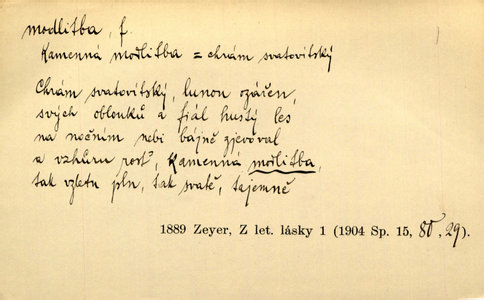 modlitba, f.
Kamenná modlitba = chrám svatovítský
Chrám svatovítský, lunou ozářen,
svých oblouků a fiál hustý les
na nočním nebi bájně zjevoval
a vzhůru rost', Kamenná modlitba,
tak vzletu pln, tak svatě, tajemně
1889 Zeyer, Z let. lásky 1 (1904 Sp. 15, 80, 29).